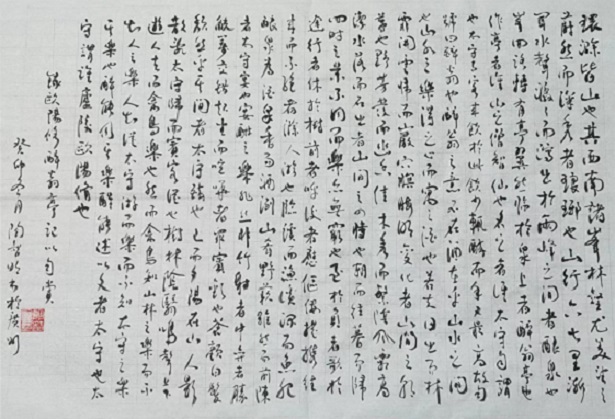 環滁皆山也其西南諸峰林壑尤美望之
蔚然而深秀者琅琊也山行六七里漸
聞水聲潺潺而瀉出於兩峰之間者釀泉也
峰回路轉有亭翼然臨於泉上者醉翁亭也
作亭者誰山之僧智仙也名之者誰太守自謂
也太守與客來飲於此飲少輒醉而年又最高故自
號曰醉翁也醉翁之意不在酒在乎山水之間
也山水之樂得之心而寓之酒也若夫日出而林
霏開雲歸而巖穴暝晦明變化者山間之朝
暮也野芳發而幽香佳木秀而繁陰風霜高
潔水落而石出者山間之四時也朝而往暮而歸
四時之景不同而樂亦無窮也至於負者歌於
途行者休於樹前者呼後者應傴僂提攜往
來而不絕者滁人游也臨溪而漁溪深而魚肥
釀泉為酒泉香而酒洌山肴野蔌雜然而前陳
者太守宴也宴酣之樂非絲非竹射者中弈者勝
觥籌交錯起坐而喧嘩者眾賓歡也蒼顏白髮
頹然乎其間者太守醉也已而夕陽在山人影
散亂太守歸而賓客從也樹林陰翳鳴聲上下
遊人去而禽鳥樂也然而禽鳥知山林之樂而不
知人之樂人知從太守游而樂而不知太守之樂
其樂也醉能同其樂醒能述以文者太守也太
守謂誰廬陵歐陽修也
錄歐陽修醉翁亭記以自賞
癸卯冬月陶於廣州